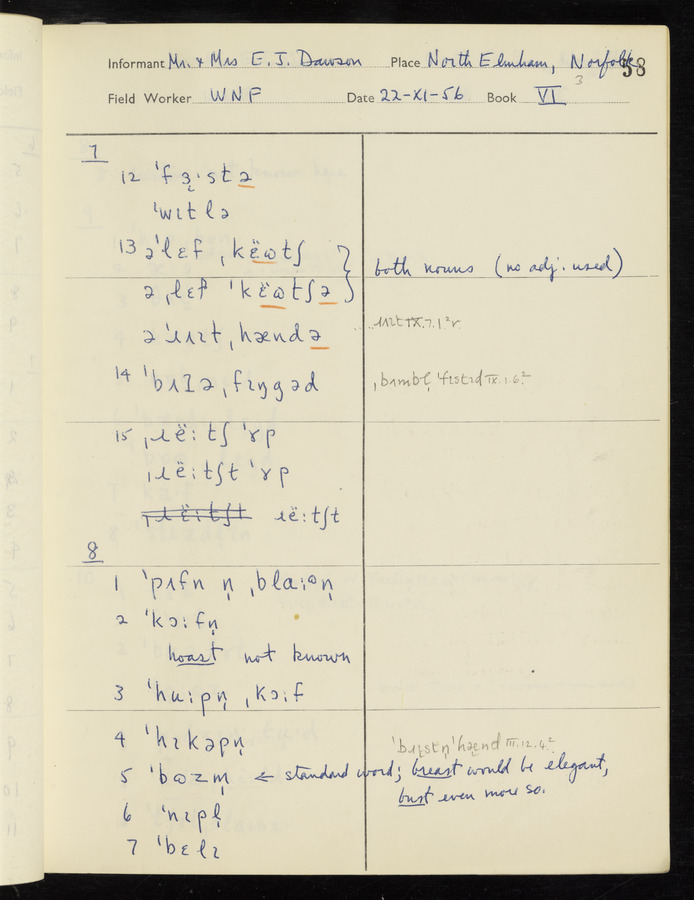 Informant Mr. & Mrs E. J. Dawson Place North Elmham, Norfolk 3 58
Field Worker WNF Date 22-XI-56 Book VI
7
12 ˈfɜ̣·stə
ˈwɪtlə
13 əˈlɛf ˌkëɷtʃ } both nouns (no adj. used)
əˌlɛf ˈkëɷtʃə
əˈɹɪɪt ˌhændə
14 ˈbʌɪə ˌfɪŋgəd
15 ˌɹë:tʃ ˈɤp
ˌɹë:tʃt ˈɤp
ɹë:tʃt
8
1 ˈpʌfn n̩ ˌblaːən̩
2 ˈkɔːfn̩
hoast not known
3 ˈhuːpn̩ ˌkɔːf
4 ˈhɪkəpn̩
5 ˈbɷzm̩ ← standard word; breast would be elegant,
bust even more so.
6 ˈnɪpl̩
7 ˈbɛlɪ